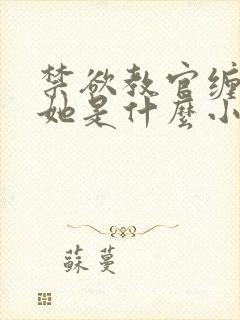 禁欲教官缠
她是什麼小
蘇蔓